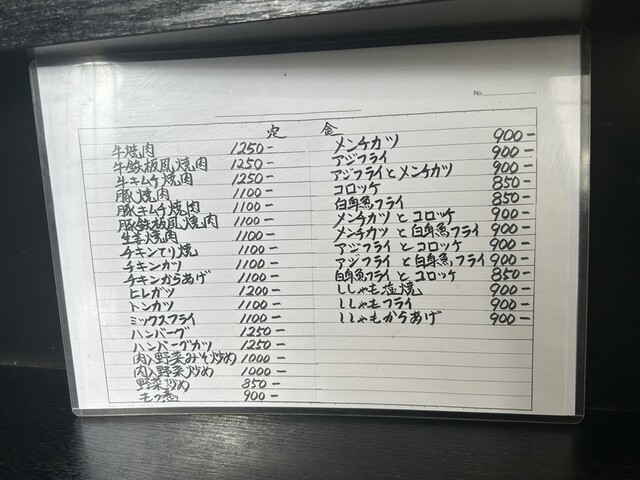 No.
定食
牛焼肉 1250-
牛鉄板風焼肉 1250-
牛キムチ焼肉 1250-
豚焼肉 1100-
豚キムチ焼肉 1100-
豚鉄板風焼肉 1100-
生姜焼肉 1100-
チキンてり焼 1100-
チキンカツ 1100-
チキンからあげ 1100-
ヒレカツ 1200-
トンカツ 1100-
ミックスフライ 1100-
ハンバーグ 1250-
ハンバーグカツ 1250-
肉入野菜みそ炒め 1000-
肉入野菜炒め 1000-
野菜炒め 850-
モツ煮 900-
メンチカツ 900-
アジフライ 900-
アジフライとメンチカツ 900-
コロッケ 850-
白身魚フライ 850-
メンチカツとコロッケ 900-
メンチカツと白身魚フライ 900-
アジフライとコロッケ 900-
アジフライと白身魚フライ 900-
白身魚フライとコロッケ 850-
ししゃも塩焼 900-
ししゃもフライ 900-
ししゃもからあげ 900-